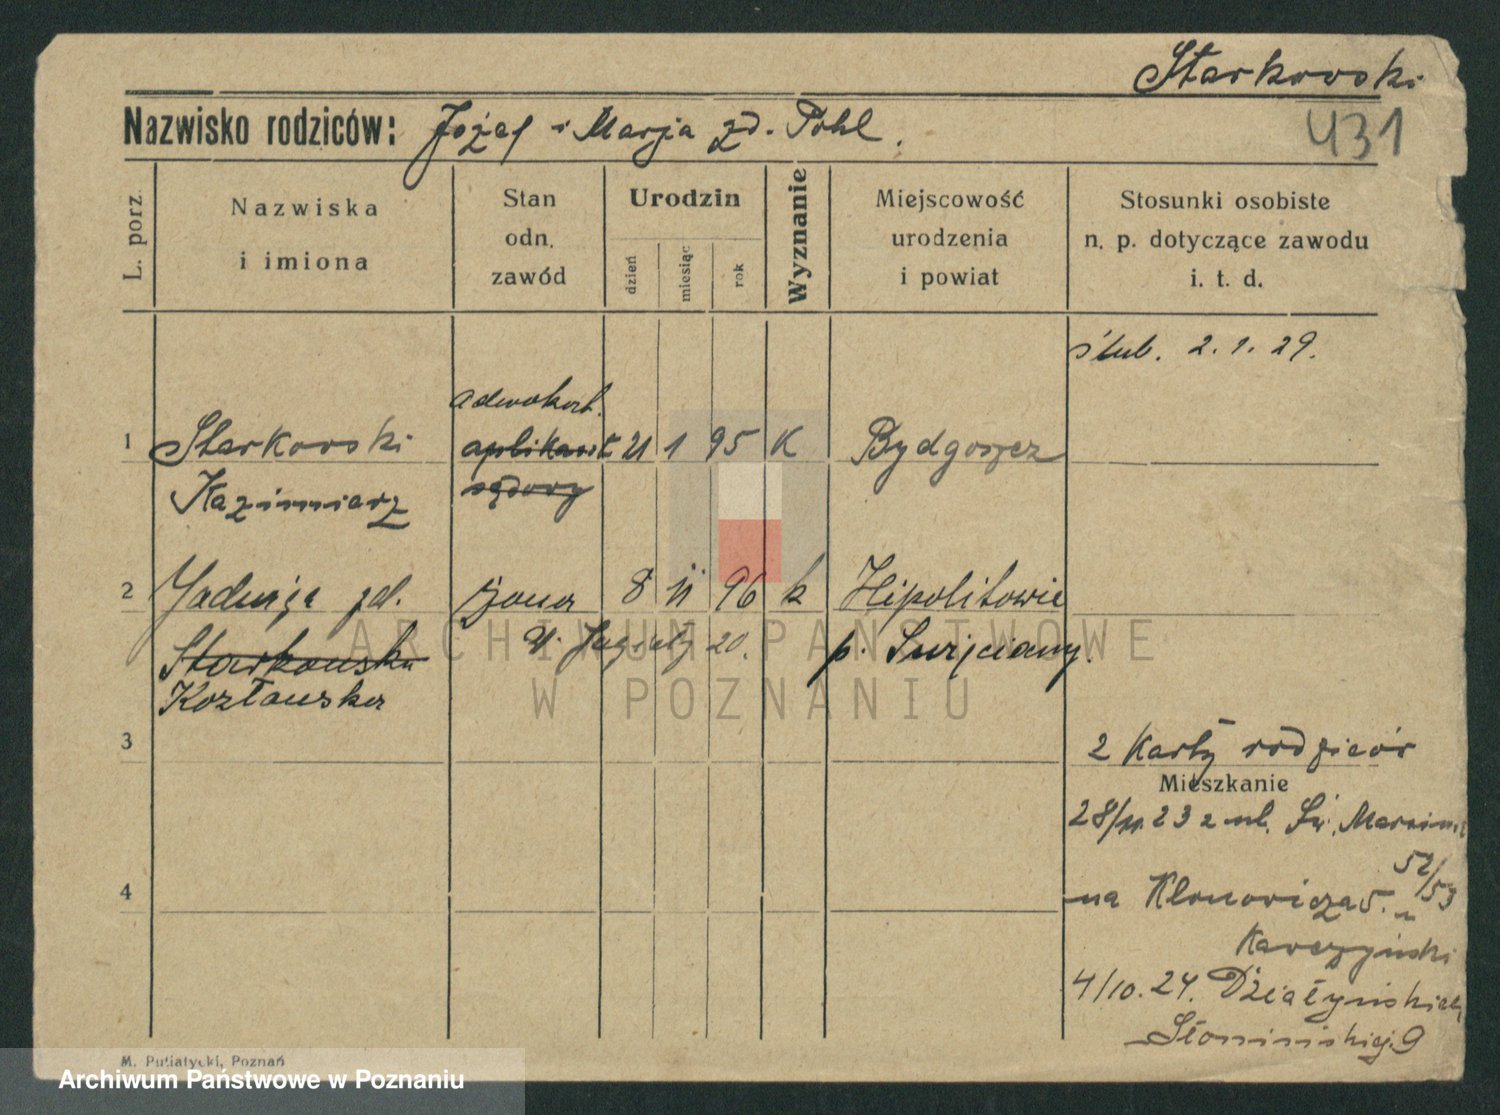 Starkowski
Nazwisko rodziców: Józef i Marja zd. Pohl.
431
L. porz.
Nazwiska
i imiona
Stan
odn.
zawód
Urodzin
dzień
miesiąc
rok
Wyznanie
Miejscowość
urodzenia
i powiat
Stosunki osobiste
n. p. dotyczące zawodu
i. t. d.
ślub. 2.1.29.
adwokat.
1 Starkowski aplikant 21 1 95 K Bydgoszcz
Kazimierz sądowy
2 Jadwiga zd. żona 8 11 96 k Hipolitowie
Starkowska 20. p. Święciany.
Kozłowska
3
2 Karty rodziców
Mieszkanie
28/11.23 z ul. Św. Marcina
52/53
4
na Klonowicza 5. u
Karczyński
4/10.24. Działyńskich
Słomińskiej 9
M. Putiatycki, Poznań
ARCHIWUM PAŃSTWOWE
W POZNANIU
Archiwum Państwowe w Poznaniu